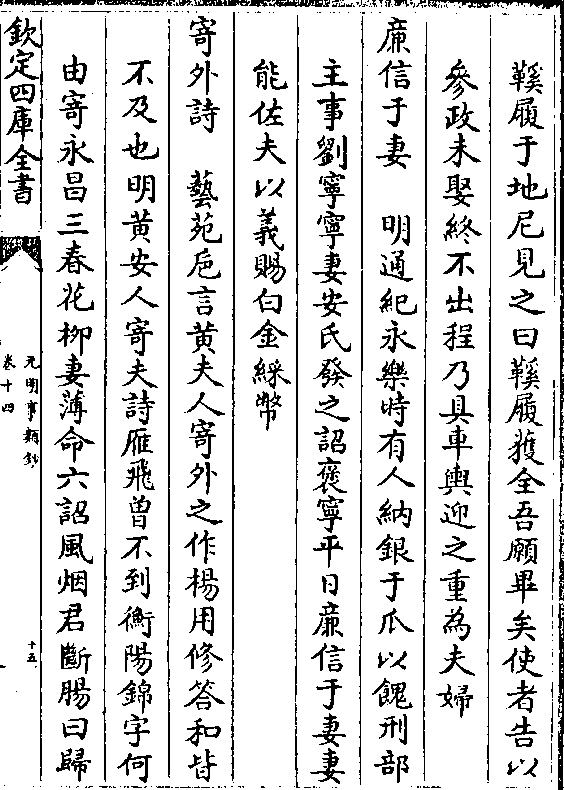 鞵履于地尼見之曰鞵履獲全吾願畢矣使者告以
參政未娶終不出程乃具車輿迎之重為夫婦
廉信于妻　明通紀永樂時有人納銀于爪以餽刑部
主事劉寧寧妻安氏發之詔褒寧平日廉信于妻妻
能佐夫以義賜白金綵幣
寄外詩　藝苑巵言黄夫人寄外之作楊用修答和皆
不及也明黄安人寄夫詩雁飛曾不到衡陽錦字何
由寄永昌三春花柳妻薄命六詔風烟君斷腸曰歸
欽定四庫全書
元明事類鈔
卷十四
十五